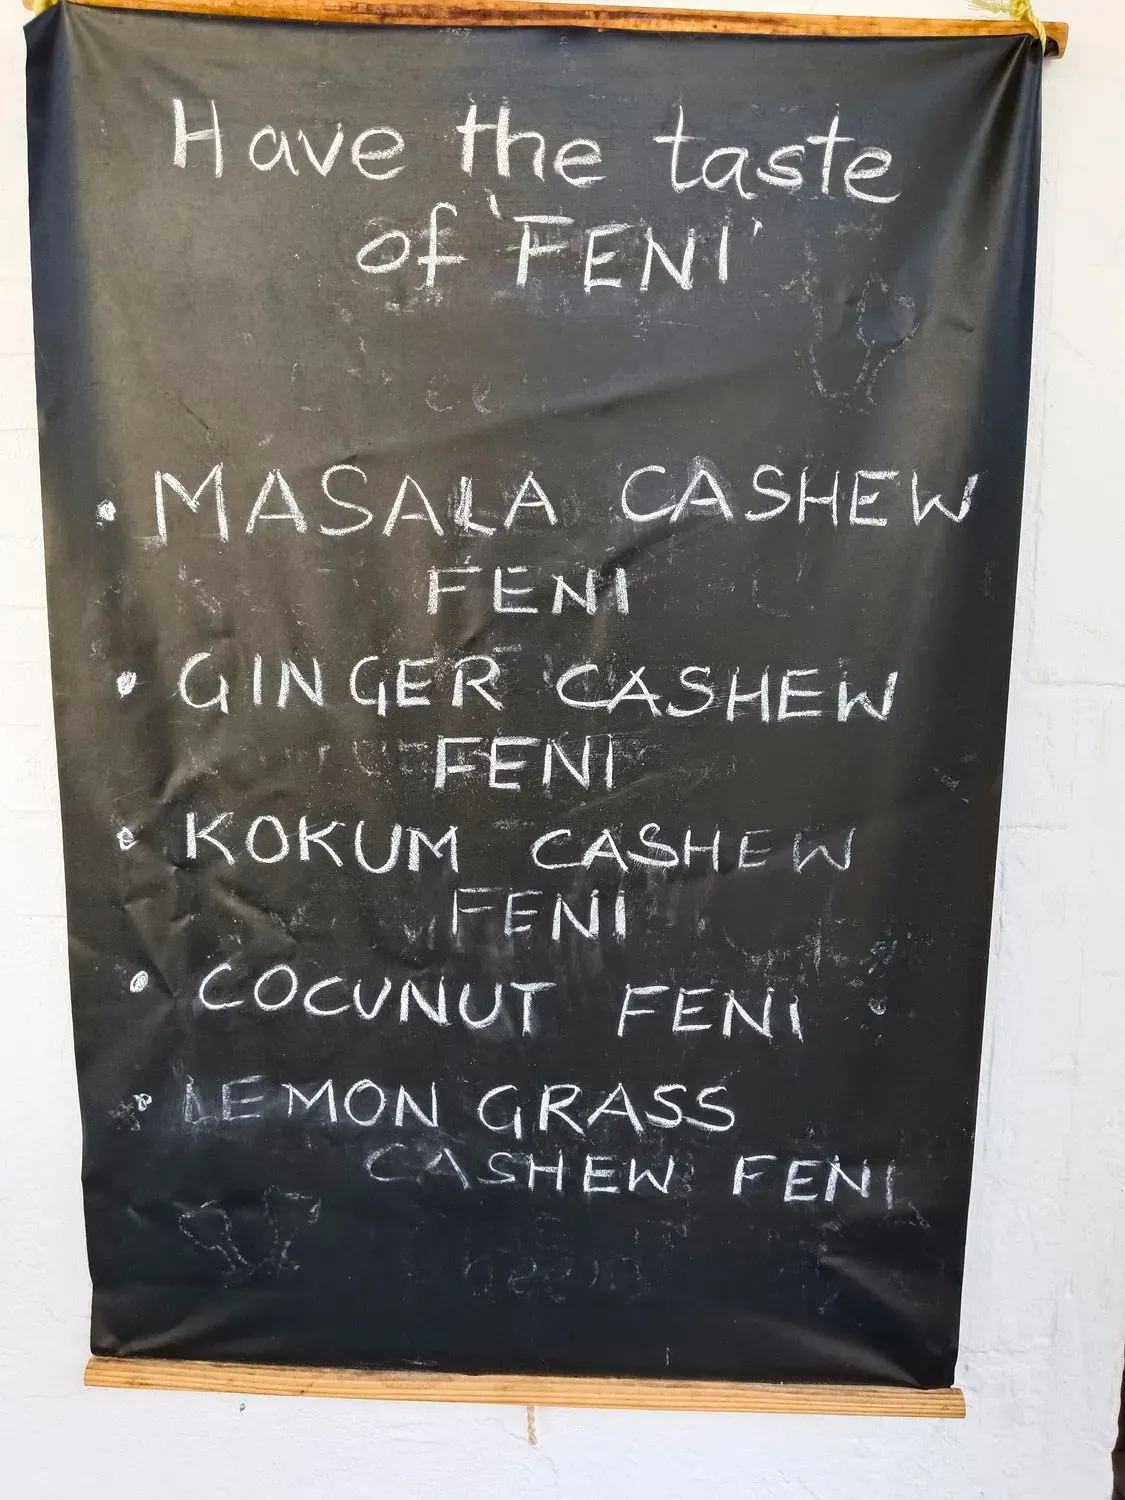 Have the taste
of 'FENI'
• MASALA CASHEW
FENI
• GINGER CASHEW
FENI
• KOKUM CASHEW
FENI
• COCUNUT FENI
• LEMON GRASS
CASHEW FENI